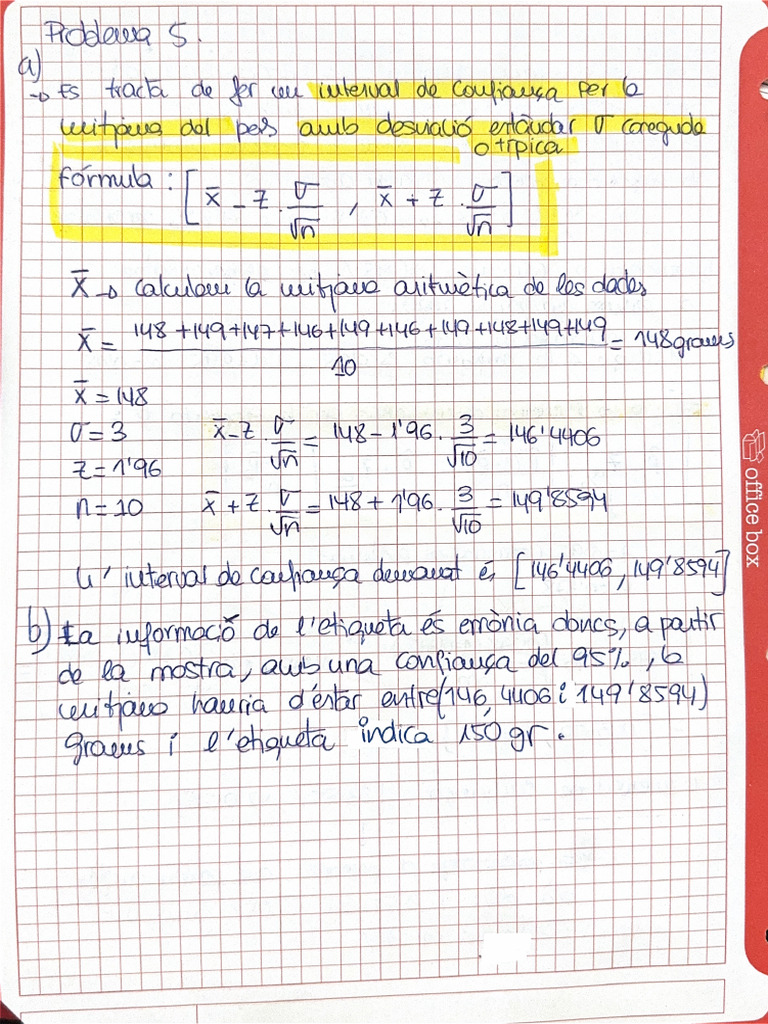 Problema 5.
a)
→ Es tracta de fer un interval de confiança per la
mitjana del pes amb desviació estàndar σ coneguda
o típica
fórmula: [x̄ - z · σ/√n , x̄ + z · σ/√n]
x̄ → calculem la mitjana aritmètica de les dades
x̄ = (148+149+147+146+149+146+149+148+149+149)/10 = 148 grams
x̄ = 148
σ = 3 x̄ - z · σ/√n = 148 - 1'96 · 3/√10 = 146'4406
z = 1'96
n = 10 x̄ + z · σ/√n = 148 + 1'96 · 3/√10 = 149'8594
L'interval de confiança demanat és [146'4406, 149'8594]
b) La informació de l'etiqueta és errònia doncs, a partir
de la mostra, amb una confiança del 95%, la
mitjana hauria d'estar entre (146,4406 i 149'8594)
grams i l'etiqueta indica 150 gr.
office box